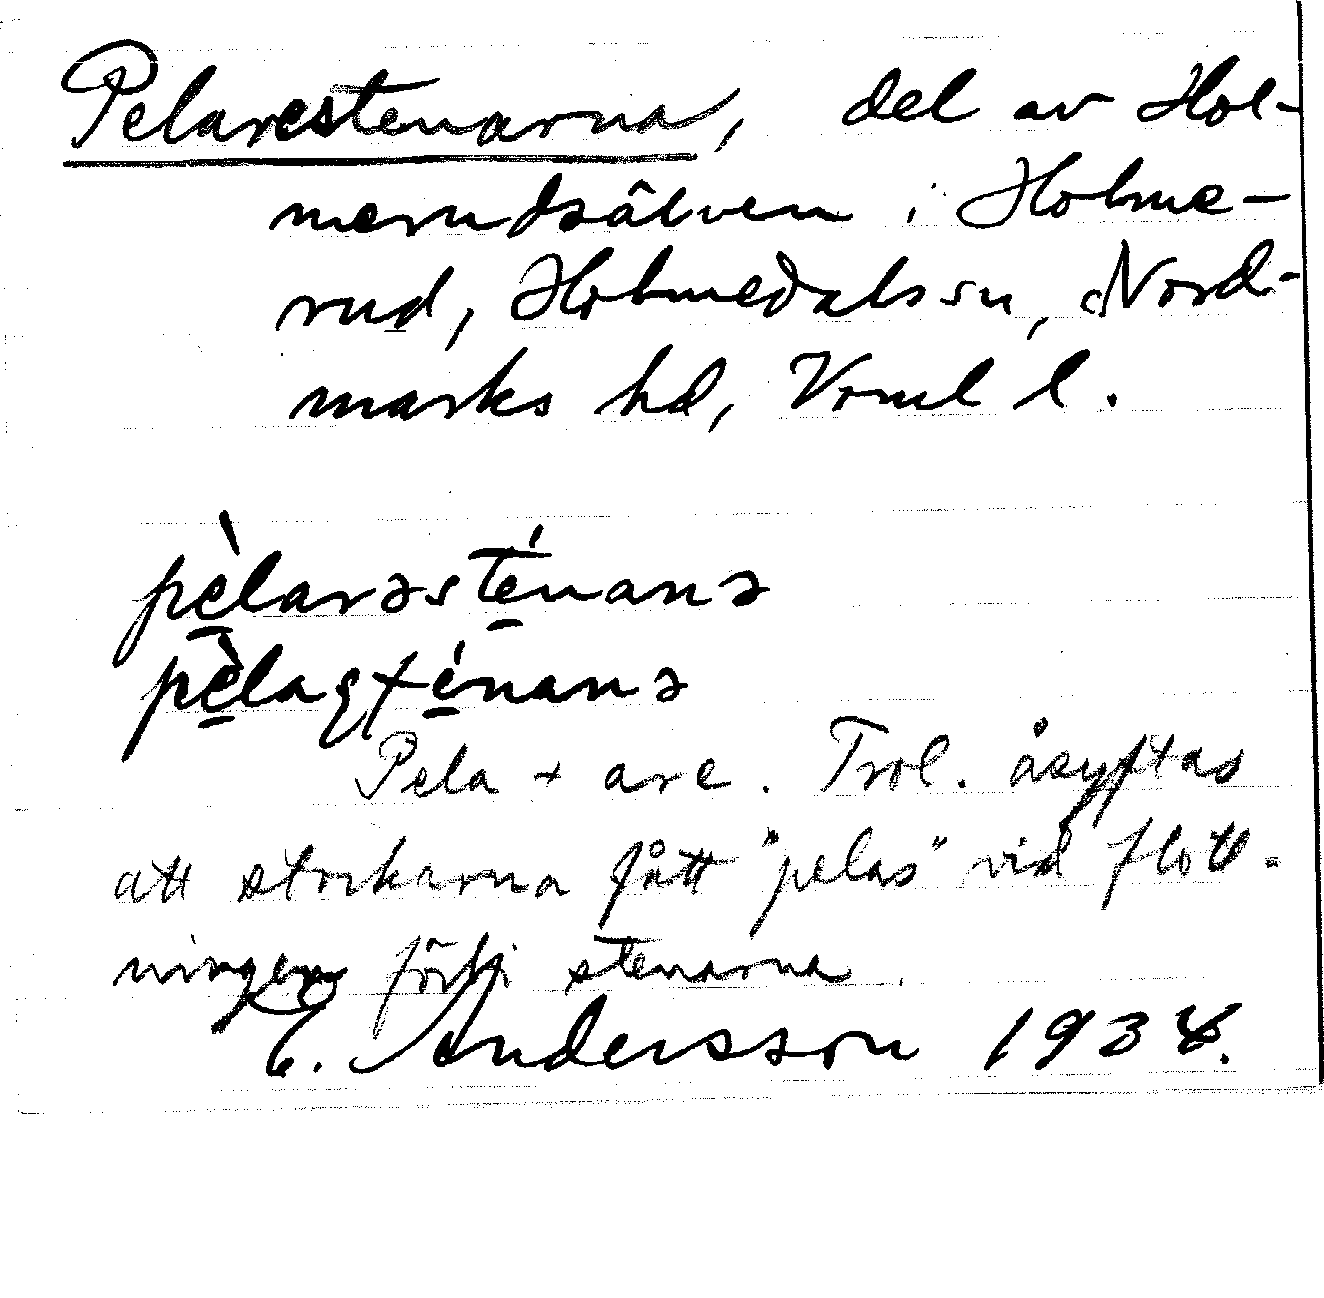 Pelarestenarna, del av Hol-
merudsälven i Holme-
rud, Holmedals sn, Nord-
marks hd, Vrml l.
pè̱larəsté̱nanə
pè̱laʂʈé̱nanə
Pela + are. Trol. åsyftas
att stockarna fått "pelas" vid flott-
ningen förbi stenarna.
E. Andersson 1934.